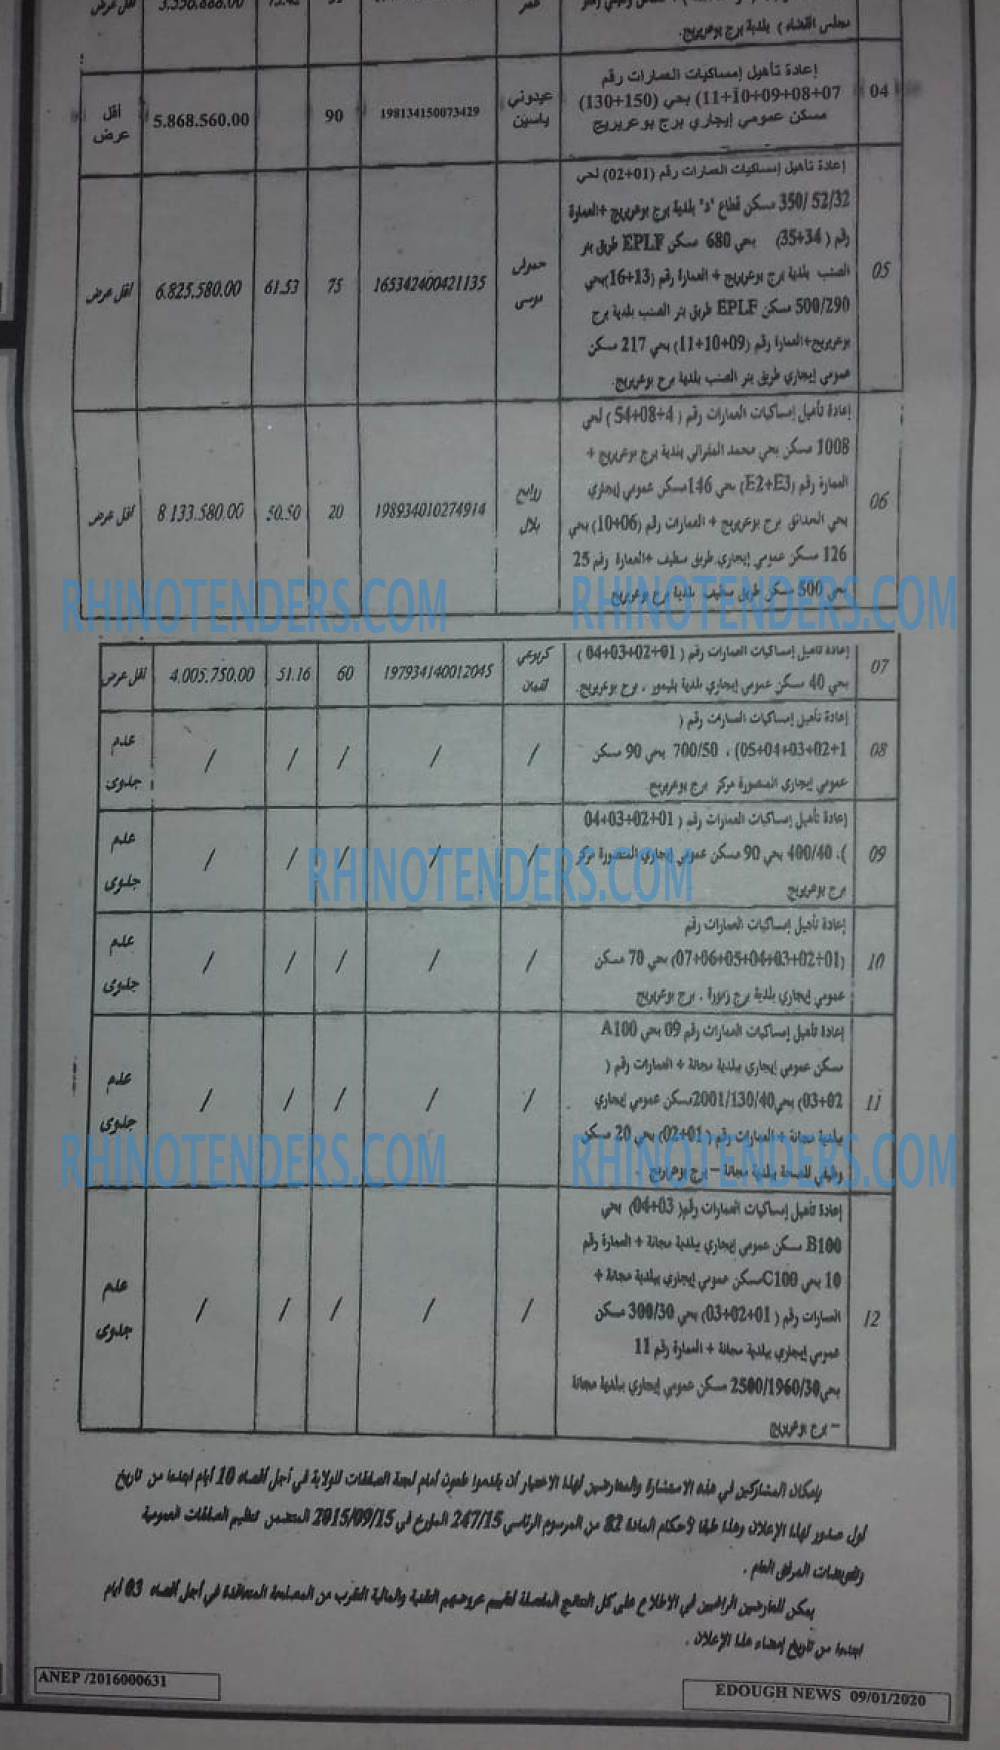 مجلس القضاء ) بلدية برج بوعريريج.
04
إعادة تأهيل إمساكيات العمارات رقم
07+08+09+10+11) بحي (150+130)
مسكن عمومي إيجاري برج بوعريريج
عيدوني
ياسين
198134150073429
90
5.868.560.00
أقل
عرض
05
إعادة تأهيل إمساكيات العمارات رقم (01+02) لحي
350/ 52/32 مسكن قطاع "د" بلدية برج بوعريريج +العمارة
رقم ( 34+35) بحي 680 مسكن EPLF طريق بئر
الصنب بلدية برج بوعريريج + العمارة رقم (13+16)بحي
500/290 مسكن EPLF طريق بئر الصنب بلدية برج
بوعريريج+العمارة رقم (09+10+11) بحي 217 مسكن
عمومي إيجاري طريق بئر الصنب بلدية برج بوعريريج.
موسى
165342400421135
75
61.53
6.825.580.00
اقل عرض
06
إعادة تأهيل إمساكيات العمارات رقم ( 4+08+54 ) لحي
1008 مسكن بحي محمد المقراني بلدية برج بوعريريج +
العمارة رقم (E2+E3) بحي 146مسكن عمومي إيجاري
بحي الحدائق برج بوعريريج + العمارات رقم (06+10) بحي
126 مسكن عمومي إيجاري طريق سطيف +العمارة رقم 25
بحي 500 مسكن طريق سطيف بلدية برج بوعريريج
روابح
بلال
198934010274914
20
50.50
8.133.580.00
اقل عرض
RHINOTENDERS.COM
RHINOTENDERS.COM
07
إعادة تأهيل إمساكيات العمارات رقم ( 01+02+03+04 )
بحي 40 مسكن عمومي إيجاري بلدية بليمور ، برج بوعريريج.
لقمان
197934140012045
60
51.16
4.005.750.00
اقل عرض
08
إعادة تأهيل إمساكيات العمارات رقم (
1+02+03+04+05) ، 700/50 بحي 90 مسكن
عمومي إيجاري المنصورة مركز برج بوعريريج
/ / / / /
عدم
جدوى
09
إعادة تأهيل إمساكيات العمارات رقم ( 01+02+03+04
)، 400/40 بحي 90 مسكن عمومي إيجاري المنصورة مركز
برج بوعريريج
/ / / / /
عدم
جدوى
RHINOTENDERS.COM
10
إعادة تأهيل إمساكيات العمارات رقم
(01+02+03+04+05+06+07) بحي 70 مسكن
عمومي إيجاري بلدية برج زمورة ، برج بوعريريج
/ / / / /
عدم
جدوى
11
إعادة تأهيل إمساكيات العمارات رقم 09 بحي A100
مسكن عمومي إيجاري ببلدية مجانة + العمارات رقم (
02+03) بحي2001/130/40مسكن عمومي إيجاري
بلدية مجانة + العمارات رقم ( 01+02) بحي 20 مسكن
وظيفي للصحة بلدية مجانة – برج بوعريريج .
/ / / / /
عدم
جدوى
RHINOTENDERS.COM
RHINOTENDERS.COM
12
إعادة تأهيل إمساكيات العمارات رقم( 03+04) بحي
B100 مسكن عمومي إيجاري ببلدية مجانة + العمارة رقم
10 بحي C100مسكن عمومي إيجاري ببلدية مجانة +
العمارات رقم ( 01+02+03) بحي 300/30 مسكن
عمومي إيجاري ببلدية مجانة + العمارة رقم 11
بحي2500/1960/30 مسكن عمومي إيجاري ببلدية مجانة
– برج بوعريريج
/ / / / /
عدم
جدوى
بإمكان المشاركين في هذه الاستشارة والمعارضين لهذا الاختيار أن يقدموا طعون أمام لجنة الصفقات للولاية في أجل أقصاه 10 أيام ابتداءا من تاريخ
أول صدور لهذا الإعلان وهذا طبقا لأحكام المادة 82 من المرسوم الرئاسي 247/15 المؤرخ في 2015/09/15 المتضمن تنظيم الصفقات العمومية
وتفويضات المرفق العام .
يمكن للعارضين الراغبين في الاطلاع على كل النتائج المفصلة لتقييم عروضهم التقنية والمالية التقرب من المصلحة المتعاقدة في أجل أقصاه 03 أيام
ابتداءا من تاريخ إمضاء هذا الإعلان .
ANEP /2016000631
EDOUGH NEWS 09/01/2020